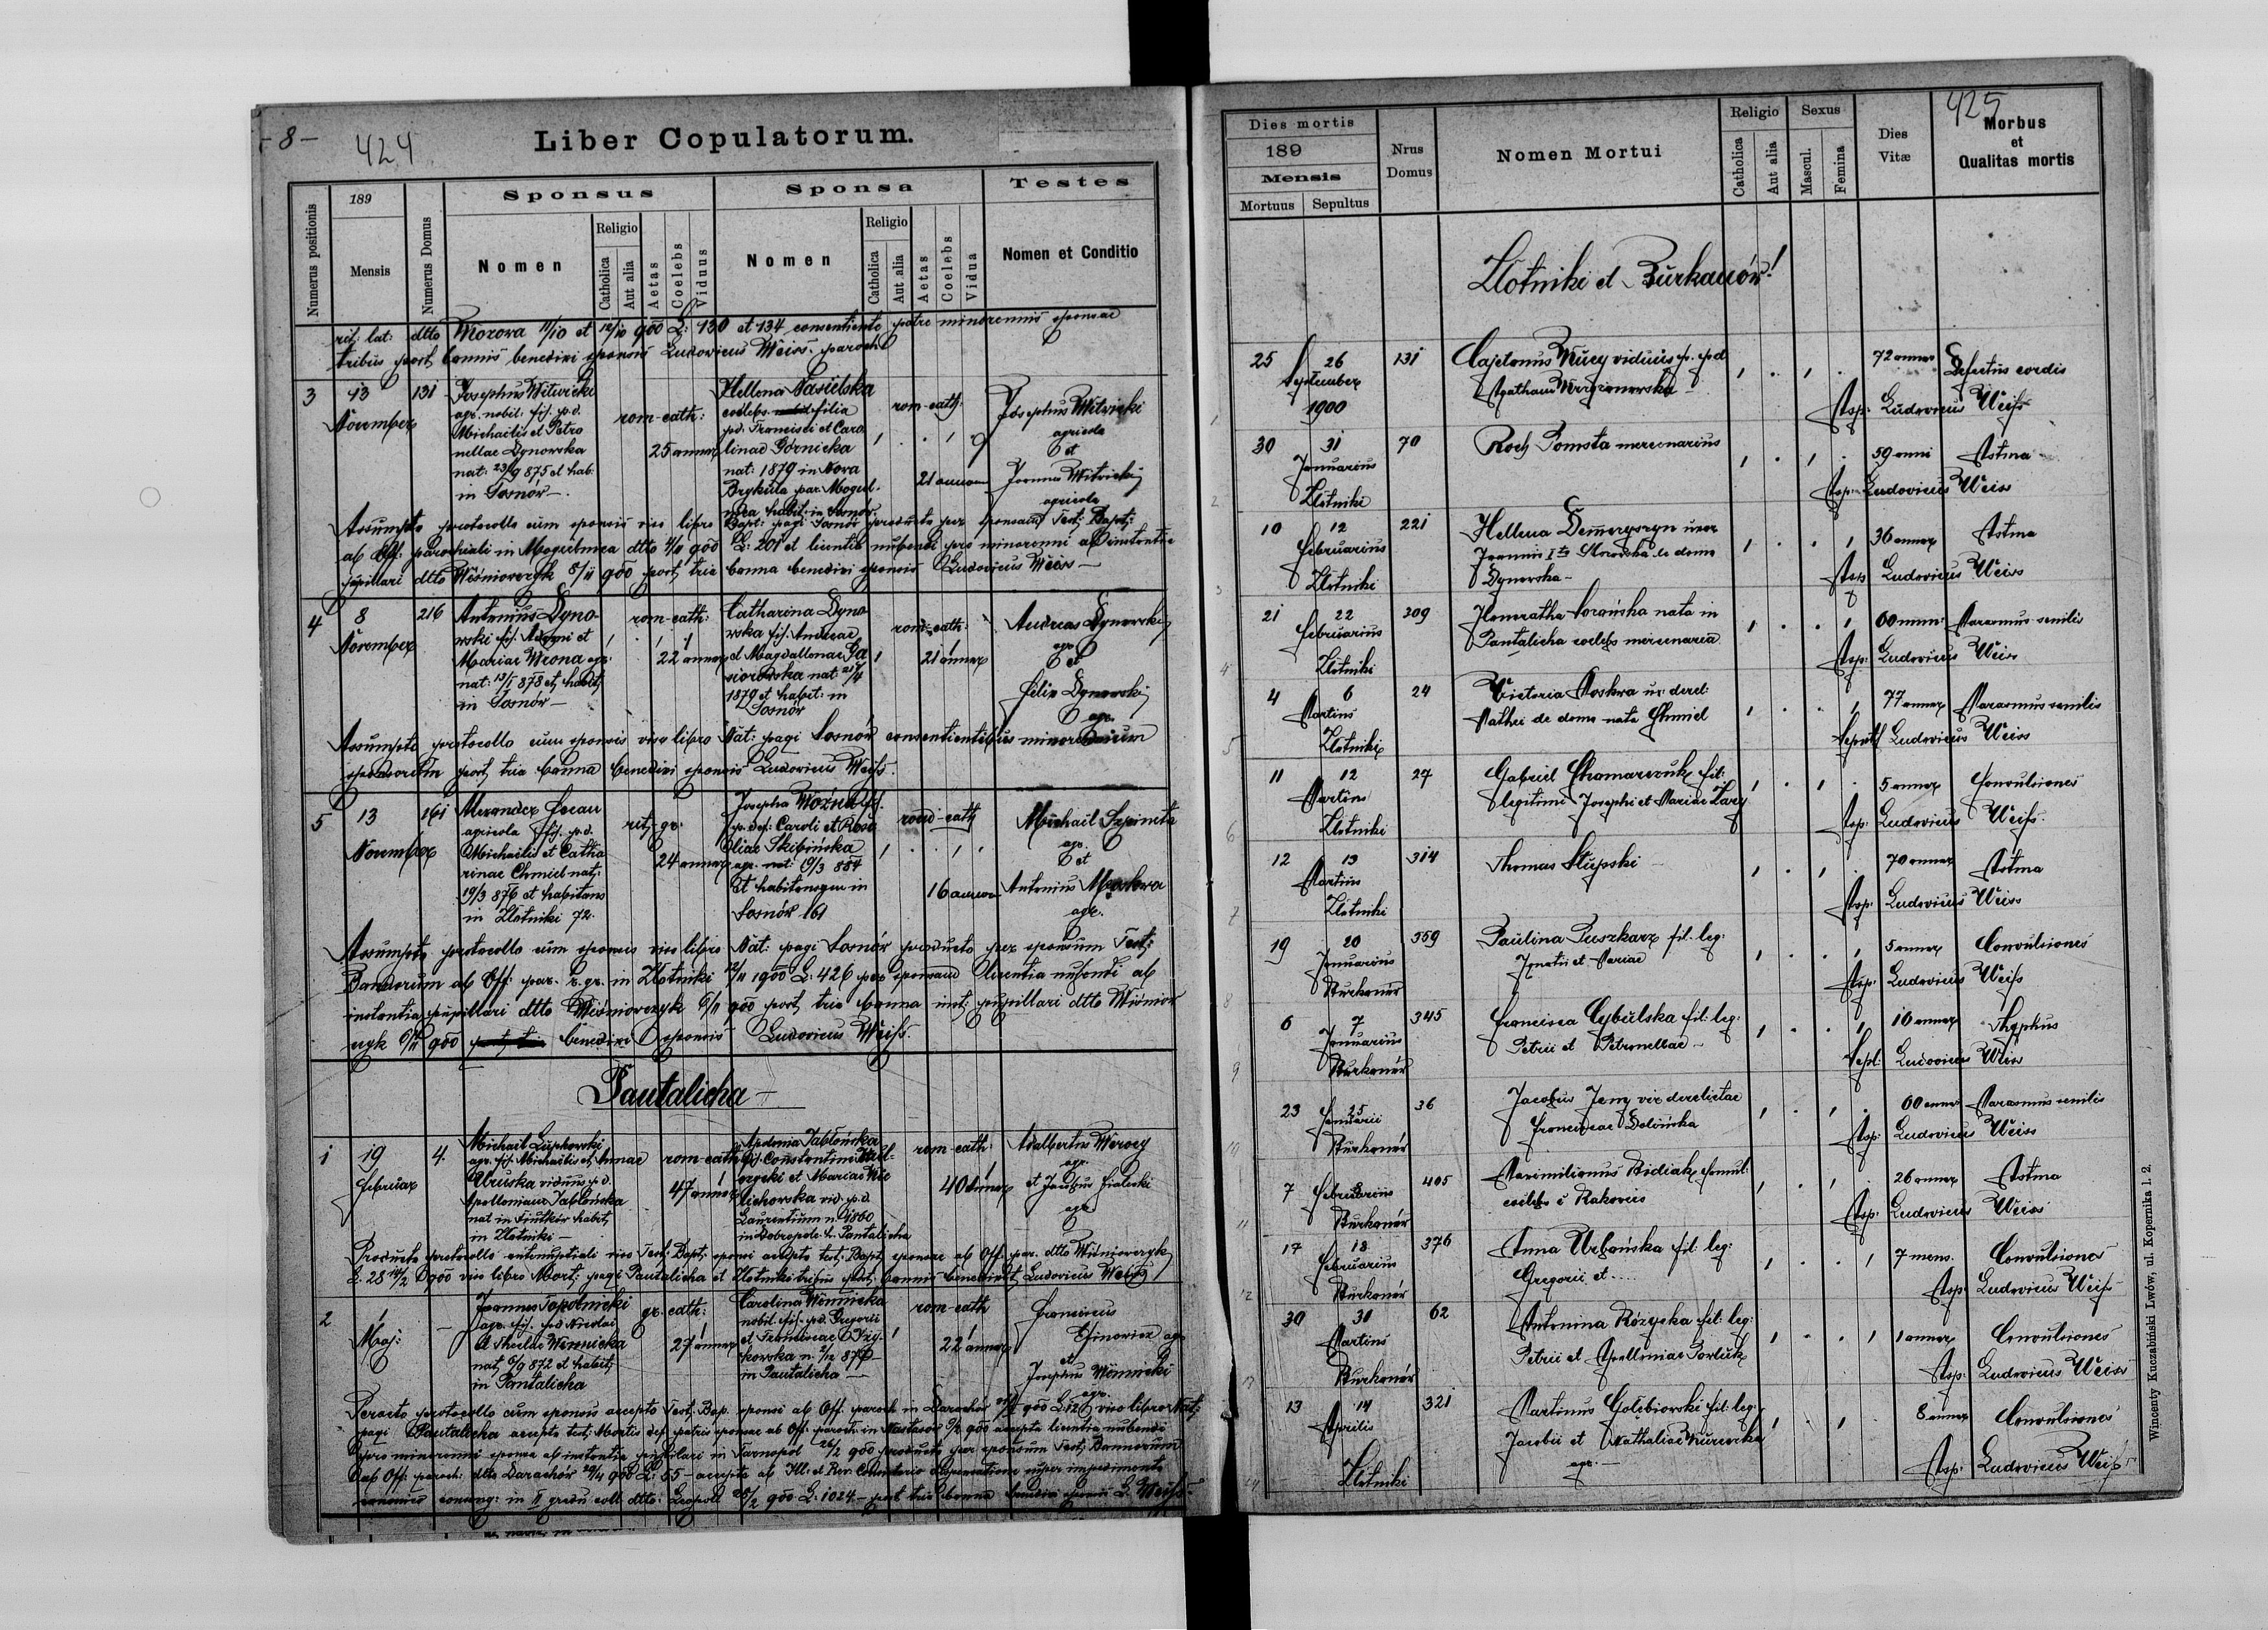 - 8 -
424
Liber Copulatorum.
Numerus positionis
189
Mensis
Numerus Domus
Sponsus
Sponsa
Testes
Nomen
Religio
Catholica
Aut alia
Aetas
Coelebs
Viduus
Nomen
Religio
Catholica
Aut alia
Aetas
Coelebs
Vidua
Nomen et Conditio
rit: lat: dtto Mozova 11/10 et 12/10 900 L: 130 et 134 consentiente patre minorennis sponsae
tribus post bannis benedixi sponsis Ludovicus Weiss paroch
3
13
November
131
Josephus Witwicki
agr. nobil: fil. p.d.
Michaelis et Petro
nellae Dynowska
nat: 23/9 875 et hab.
in Sosnów -
rom-cath:
25 annor
Hellena Nasielska
coelebs filia
pd. Francisci et Caro
linae Górnicka
nat: 1879 in Nova
Brykula par. Mogiel-
nica habit: in Sosnów
rom-cath:
21 annor
Josephus Witwicki
agricola
et
Joannes Witwicki
agricola
Assumpto protocollo cum sponsis viso libro Bapt: pagi Sosnów producto per sponsam Test: Bapt:
ab Off: parochiali in Mogielnica dtto 4/11 900 L: 201 et licentia nubendi pro minorenni ab instantia
pupillari dtto Wiśniowczyk 5/11 900 post tria banna benedixi sponsis Ludovicus Weiss -
4
8
November
216
Antonius Dyno-
wski fil. et
Mariae Wrona agr:
nat: 13/1 878 et habit:
in Sosnów -
rom-cath:
22 annor
Catharina Dyno
wska fil. Andreae
et Magdallenae Ga
siorowska nat 21/4
1879 et habit: in
Sosnów
rom-cath:
21 annor
Andreas Dynowski
agr
et
Felix Dynowski
agr.
Assumpto protocollo cum sponsis viso libro Nat: pagi Sosnów consentientibus minorennium
post tria banna benedixi sponsis Ludovicus Weiss.
5
13
November
161
Alexander
agricola fil. p.d.
Michaelis et Catha
rinae Chmiel nat:
19/3 876 et habitans
in Zlotniki 72.
rit: gr
24 annor
Josepha Woźna fil.
p. def: Caroli et Rosa
liae Skibińska
agr. nat: 19/3 884
et habitansque in
Sosnów 161
rom-cath
16 annor
Michael Szpinita
agr.
et
Antonius Moskwa
agr.
Assumpto protocollo cum sponsis viso libro Nat: pagi Sosnów producto per sponsum Test:
Bannorum ab Off: par. r. gr. in Zlotniki 12/11 1900 L: 426 per sponsam licentia nubendi ab
instantia pupillari dtto Wiśniowczyk 6/11 900 post tria banna inst: pupillari dtto Wiśniow
czyk 6/11 900 benedixi sponsis Ludovicus Weiss.
Pantalicha
1
19
Februar
4.
Michael Łuphowski
agr. fil. Michaelis et Annae
Uhruska viduus p.d.
Apolloniam Jabłońska
nat in Siutków habit:
in Zlotniki -
rom-cath
47 annor
Jabłońska
fil. Constantini
et Mariae Wie
lichowska vid. p.d.
Laurentium n. 1860
in Dobropole h. Pantalicha
rom-cath:
40 annor
Adalbertus Worocy
agr.
et Jacobus Fialecki
agr.
Producto protocollo antenuptiali viso Test: Bapt: sponsi accepto test: Bapt: sponsae ab Off: par. dtto Wiśniowczyk
L: 28 14/2 900 viso libro Mort: pagi Pantalicha et Zlotniki tribus post bannis benedixit Ludovicus Weiss
2
Maj:
Joannes Topolnicki
agr. fil. pd Nicolai
et Theclae Winnicka
nat 6/9 872 et habit:
in Pantalicha
gr. cath:
27 annor
Carolina Winnicka
nobil. fil. pd. Gregorii
et Franciscae
kowska n. 2/12 87
in Pantalicha -
rom-cath
22 annor
Franciscus
agr
et
Josephus Winnicki
agr.
Peracto protocollo cum sponsis accepto Test: Bap. sponsi ab Off: paroch in Darachów 900 L: 126 viso libro Nat:
pagi Pantalicha accepto test: Mortis def: patris sponsae ab Off: paroch: in Nastasów 9/2 900 accepta licentia nubendi
pro minorenni sponsa ab instantia pupillari in Tarnopol 26/2 900 producto per sponsum Test: Bannorum
ab Off: paroch: dtto Darachów 29/4 900 L: 55 - accepta ab Ill: et Rev: Consistorio dispensatione super impedimento
consang: in II gradu coll dtto: Leopoli 28/2 900 L: 1024 - post tria banna benedixi sponsis L. Weiss -
425
Dies mortis
189
Mensis
Mortuus
Sepultus
Nrus Domus
Nomen Mortui
Religio
Catholica
Aut alia
Sexus
Mascul.
Femina
Dies Vitæ
Morbus
et
Qualitas mortis
Zlotniki et Burkanów!
1
25
26
September
1900
131
Cajetanus Mucy viduus p. pd
Agatham
72 annor
Defectus cordis
Asp: Ludovicus Weiss
2
30
31
Januarius
Zlotniki
70
Roch Pomsta mercenarius
59 anni
Astma
Asp: Ludovicus Weiss
3
10
12
Februarius
Zlotniki
221
Hellena uxor
Joannis de domo
Dynowska -
36 annor
Astma
Asp: Ludovicus Weiss
4
21
22
Februarius
Zlotniki
309
Honoratha nata in
Pantalicha coelebs mercenaria
60 annor
Marasmus senilis
Asp: Ludovicus Weiss
5
4
6
Martius
Zlotniki
24
Victoria Moskwa ux: derel:
Mathei de domo nata Chmiel
77 annor
Marasmus senilis
Sepult Ludovicus Weiss
6
11
12
Martius
Zlotniki
27
Gabriel fil:
legitimi Josephi et Mariae Zary
5 annor
Convulsiones
Asp: Ludovicus Weiss.
7
12
13
Martius
Zlotniki
314
Thomas Słupski -
70 annor
Astma
Asp: Ludovicus Weiss
8
19
20
Januarius
Burkanów
359
Paulina Puszkarz fil. leg:
Ignatii et Mariae
5 annor
Convulsiones
Asp: Ludovicus Weiss
9
6
7
Januarius
Burkanów
345
Francisca Cybulska fil: leg:
Petrii et Petronellae -
10 annor
Thyphus
Sepl: Ludovicus Weiss
10
23
25
Januarii
Burkanów
36
Jacobus Jeny vir derelictae
Franciscae Dolińska
60 annor
Marasmus senilis
Asp: Ludovicus Weiss
11
7
Februarius
Burkanów
405
Maximilianus Bidiak famul:
coelebs e Rakowiec
26 annor
Astma
Asp: Ludovicus Weiss
12
17
18
Februarius
Burkanów
376
Anna Urbańska fil: leg:
Gregorii et ....
7 mens.
Convulsiones
Asp: Ludovicus Weiss
13
30
31
Martius
Burkanów
62
Antonina Różycka fil: leg:
Petrii et Apolloniae Pawluk
1 annor
Convulsiones
Asp: Ludovicus Weiss
14
13
14
Aprilis
Zlotniki
321
Martinus Gołębiowski fil: leg:
Jacobii et Nathaliae
agr. -
8 annor
Convulsiones
Asp: Ludovicus Weiss
Wincenty Kuczabiński Lwów, ul. Kopernika l. 2.